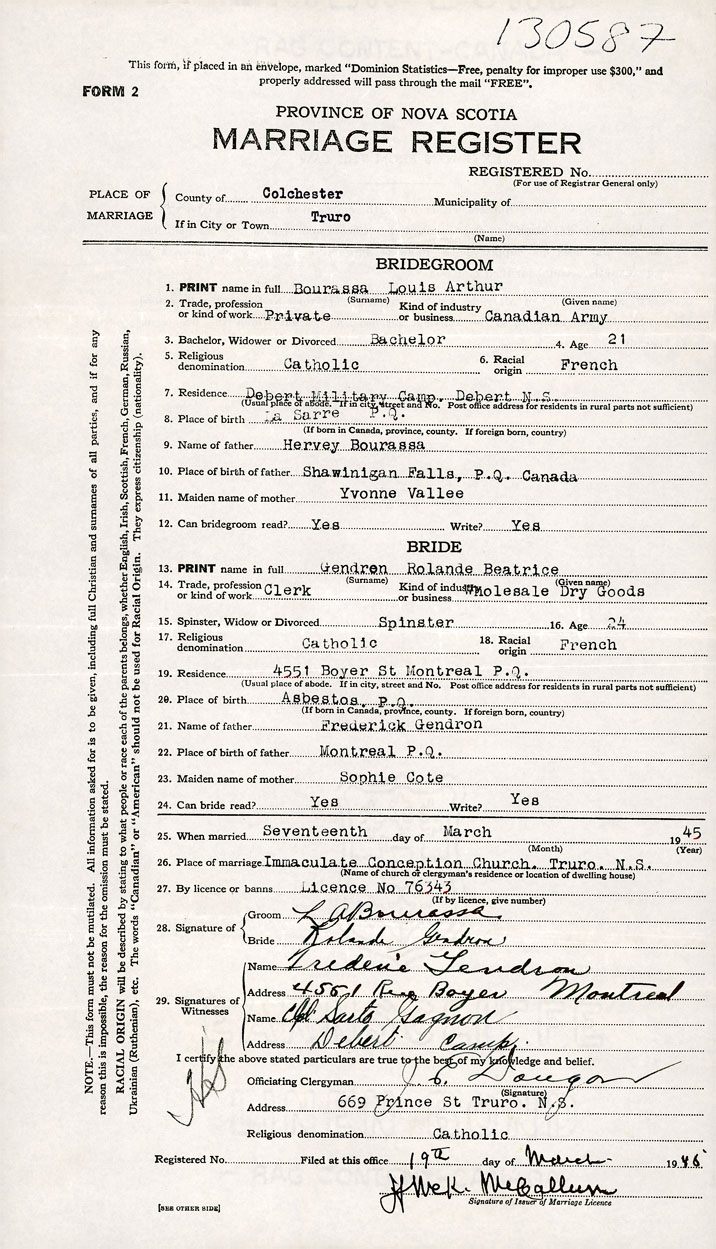 130587
This form, if placed in an envelope, marked “Dominion Statistics—Free, penalty for improper use $300,” and
properly addressed will pass through the mail “FREE”.
FORM 2
PROVINCE OF NOVA SCOTIA
MARRIAGE REGISTER
REGISTERED No.
(For use of Registrar General only)
PLACE OF MARRIAGE
County of Colchester Municipality of
If in City or Town Truro
(Name)
BRIDEGROOM
1. PRINT name in full Bourassa Louis Arthur
(Surname) (Given name)
2. Trade, profession or kind of work Private Kind of industry or business Canadian Army
3. Bachelor, Widower or Divorced Bachelor 4. Age 21
5. Religious denomination Catholic 6. Racial origin French
7. Residence Debert Military Camp. Debert N.S.
(Usual place of abode. If in city, street and No. Post office address for residents in rural parts not sufficient)
8. Place of birth La Sarre P.Q.
(If born in Canada, province, county. If foreign born, country)
9. Name of father Hervey Bourassa
10. Place of birth of father Shawinigan Falls, P.Q. Canada
11. Maiden name of mother Yvonne Vallee
12. Can bridegroom read? Yes Write? Yes
BRIDE
13. PRINT name in full Gendron Rolande Beatrice
(Surname) (Given name)
14. Trade, profession or kind of work Clerk Kind of industry or business Wholesale Dry Goods
15. Spinster, Widow or Divorced Spinster 16. Age 24
17. Religious denomination Catholic 18. Racial origin French
19. Residence 4551 Boyer St Montreal P.Q.
(Usual place of abode. If in city, street and No. Post office address for residents in rural parts not sufficient)
20. Place of birth Asbestos, P.Q.
(If born in Canada, province, county. If foreign born, country)
21. Name of father Frederick Gendron
22. Place of birth of father Montreal P.Q.
23. Maiden name of mother Sophie Cote
24. Can bride read? Yes Write? Yes
25. When married Seventeenth day of March 1945
(Month) (Year)
26. Place of marriage Immaculate Conception Church. Truro. N.S.
(Name of church or clergyman's residence or location of dwelling house)
27. By licence or banns Licence No 76343
(If by licence, give number)
28. Signature of
Groom L A Bourassa
Bride Rolande Gendron
29. Signatures of Witnesses
Name Frederic Gendron
Address 4551 Rue Boyer Montreal
Name Cpl Sarto Gagnon
Address Debert Camp.
I certify the above stated particulars are true to the best of my knowledge and belief.
Officiating Clergyman
(Signature)
Address 669 Prince St Truro. N.S.
Religious denomination Catholic
Registered No. Filed at this office 19th day of March 1945
McCallum
Signature of Issuer of Marriage Licence
[SEE OTHER SIDE]
NOTE.—This form must not be mutilated. All information asked for is to be given, including full Christian and surnames of all parties, and if for any
reason this is impossible, the reason for the omission must be stated.
RACIAL ORIGIN will be described by stating to what people or race each of the parents belongs, whether English, Irish, Scottish, French, German, Russian,
Ukrainian (Ruthenian), etc. The words “Canadian” or “American” should not be used for Racial Origin. They express citizenship (nationality).